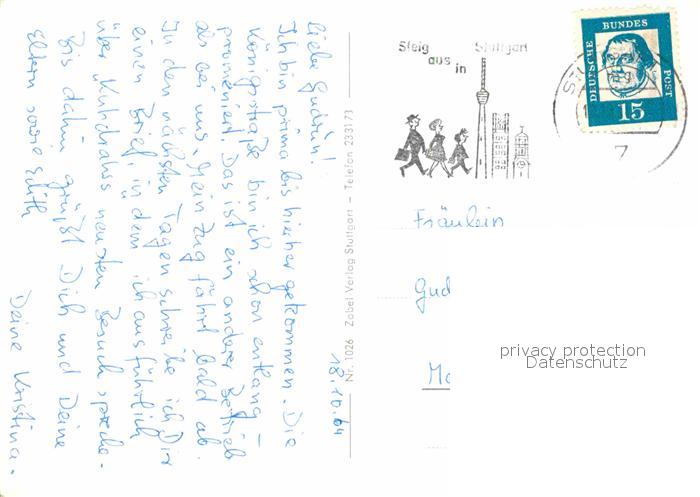 Liebe Gudrun!
Ich bin prima bis hierher gekommen. Die
Königstraße bin ich schon entlang-
promeniert. Das ist ein anderer Betrieb
als bei uns. Mein Zug fährt bald ab.
In den nächsten Tagen schreibe ich Dir
einen Brief, in dem ich ausführlich
über Kuhdrahs neusten Besuch spreche.
Bis dahin grüßt Dich und Deine
Eltern sowie Edith
Deine Kristina.
18.10.64
Nr. 1026 Zobel Verlag Stuttgart - Telefon 233173
Steig
aus
in
Stuttgart
DEUTSCHE
BUNDES
POST
15
7
Fräulein
Gud
Me
privacy protection
Datenschutz